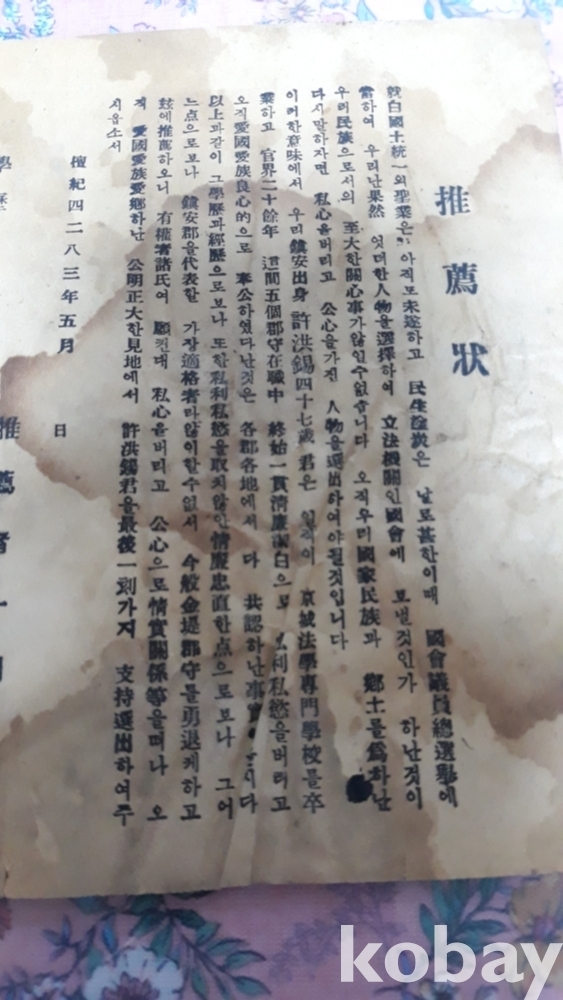 推薦狀
敬白國土統一의聖業은 아직도未遂하고 民生塗炭은 날로甚한이때 國會議員總選擧에
當하여 우리난果然 엇더한人物을選擇하여 立法機關인國會에 보낼것인가 하난것이
우리民族으로서의 至大한關心事가않일수없습니다 오직우리國家民族과 鄕土를爲하난
다시말하자면 私心을버리고 公心을가진 人物을選出하여야될것입니다
이러한意味에서 우리鎭安出身 許洪錫四十七歲 君은 일직이 京城法學專門學校를卒
業하고 官界二十餘年 這間五個郡守在職中 終始一貫淸廉潔白으로 私利私慾을버리고
오직愛國愛族良心的으로 奉公하였다난것은 各郡各地에서 다 共認하난事實임니다
以上과같이 그學歷과經歷으로보나 또한私利私慾을取치않안淸廉忠直한点으로보나 그어
느点으로보나 鎭安郡을代表할 가장適格者라않이할수없서 今般金堤郡守를勇退케하고
玆에推薦하오니 有權者諸氏여 願컨대 私心을버리고 公心으로情實關係等을떠나 오
직 愛國愛族愛鄕하난 公明正大한見地에서 許洪錫君을最後一刻가지 支持選出하여주
시옵소서
檀紀四二八三年五月 日
推薦者一同
學歷
kobay